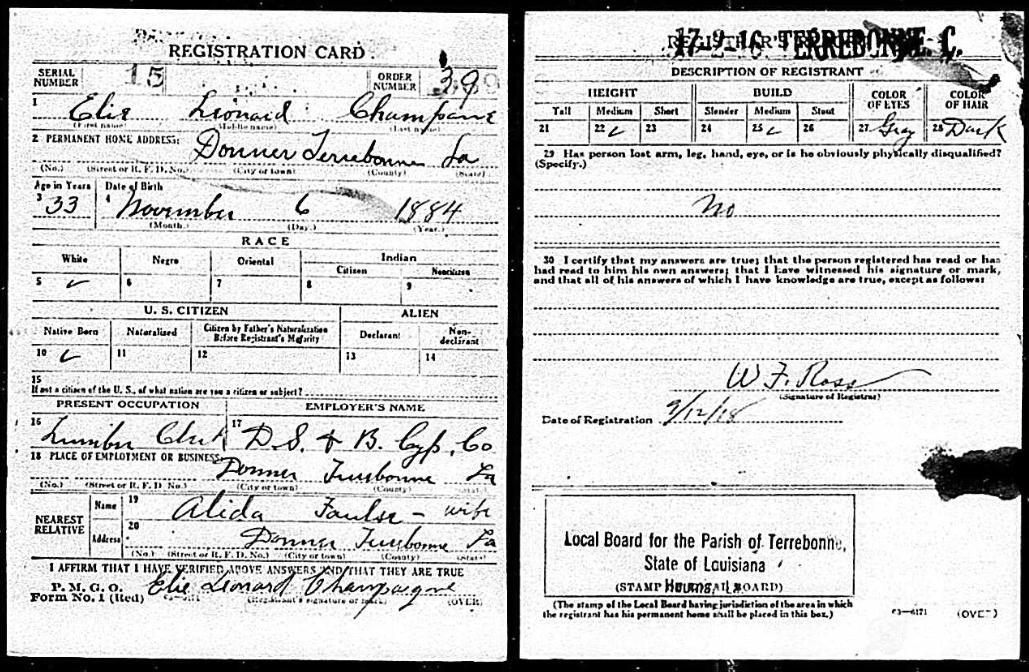 REGISTRATION CARD
SERIAL NUMBER 15 ORDER NUMBER 39
1 Elie Leonard Champane
(First name) (Middle name) (Last name)
2 PERMANENT HOME ADDRESS:
Donner Terrebonne La
(No.) (Street or R. F. D. No.) (City or town) (County) (State)
Age in Years Date of Birth
3 33 4 November 6 1884
(Month.) (Day.) (Year.)
RACE
White Negro Oriental Indian
Citizen Noncitizen
5 ✓ 6 7 8 9
U. S. CITIZEN ALIEN
Native Born Naturalized Citizen by Father's Naturalization Before Registrant's Majority Declarant Non-declarant
10 ✓ 11 12 13 14
15
If not a citizen of the U. S., of what nation are you a citizen or subject?
PRESENT OCCUPATION EMPLOYER'S NAME
16 Lumber 17 D. S. & B. Cyp. Co
18 PLACE OF EMPLOYMENT OR BUSINESS:
Donner Terrebonne La
(No.) (Street or R. F. D. No.) (City or town) (County) (State)
NEAREST RELATIVE
Name 19 Alida - wife
Address 20 Donner Terrebonne La
(No.) (Street or R. F. D. No.) (City or town) (County) (State)
I AFFIRM THAT I HAVE VERIFIED ABOVE ANSWERS AND THAT THEY ARE TRUE
P. M. G. O.
Form No. 1 (Red) Elie Leonard Champagne
(Registrant's signature or mark) (OVER)
17-2-16 TERREBONNE. C.
REGISTRAR'S
DESCRIPTION OF REGISTRANT
HEIGHT BUILD COLOR OF EYES COLOR OF HAIR
Tall Medium Short Slender Medium Stout
21 22 ✓ 23 24 25 ✓ 26 27 Gray 28 Dark
29 Has person lost arm, leg, hand, eye, or is he obviously physically disqualified?
(Specify.)
No
30 I certify that my answers are true; that the person registered has read or has
had read to him his own answers; that I have witnessed his signature or mark,
and that all of his answers of which I have knowledge are true, except as follows:
W. F. Ross
(Signature of Registrar)
Date of Registration 9/12/18
Local Board for the Parish of Terrebonne,
State of Louisiana
(STAMP OF LOCAL BOARD)
Houma, La.
(The stamp of the Local Board having jurisdiction of the area in which
the registrant has his permanent home shall be placed in this box.)
03-6171 (OVER)